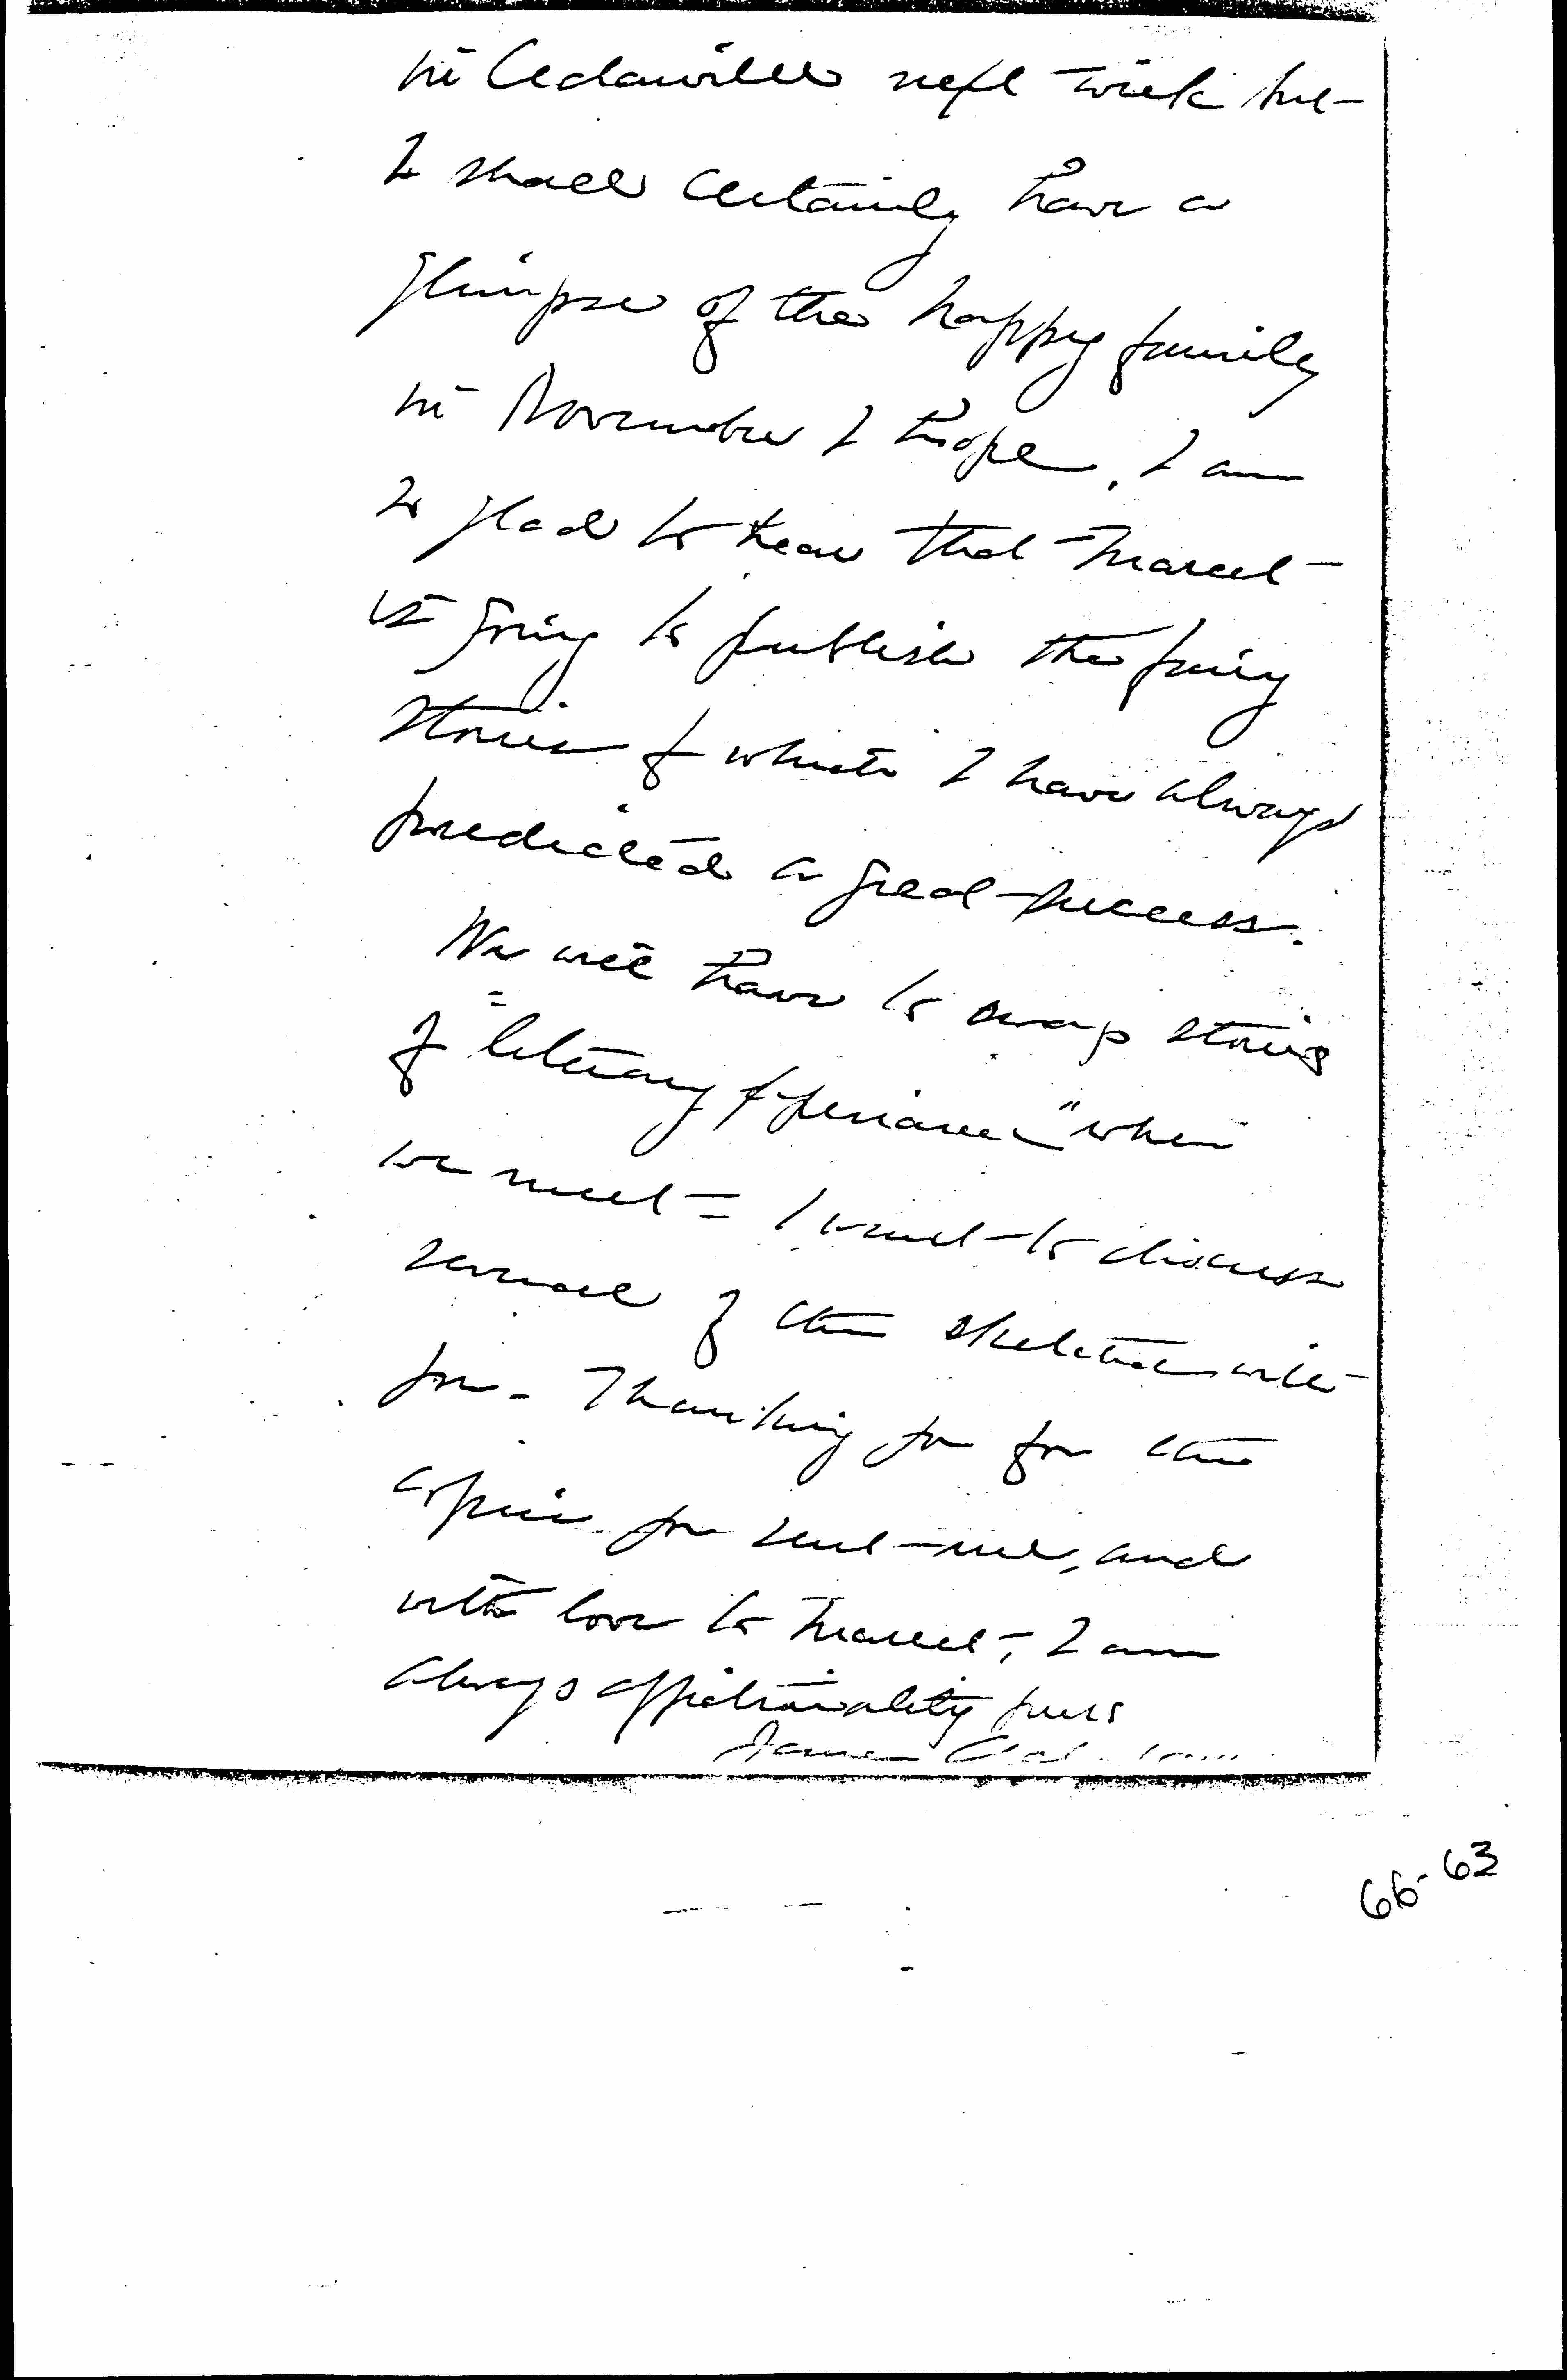 in Cedarville next week but
I shall certainly have a
glimpse of the happy family
in November I hope. I am
so glad to hear that Marcet
is going to publish the fairy
stories of which I have always
predicted a great success.
We will have to swap stories
of "literary experiences" when
we meet = I want to discuss
several of the sketches with
you - Thanking you for the
copies you sent me, and
with love to Marcet, I am
always affectionately yours
Jane Addams
66-63